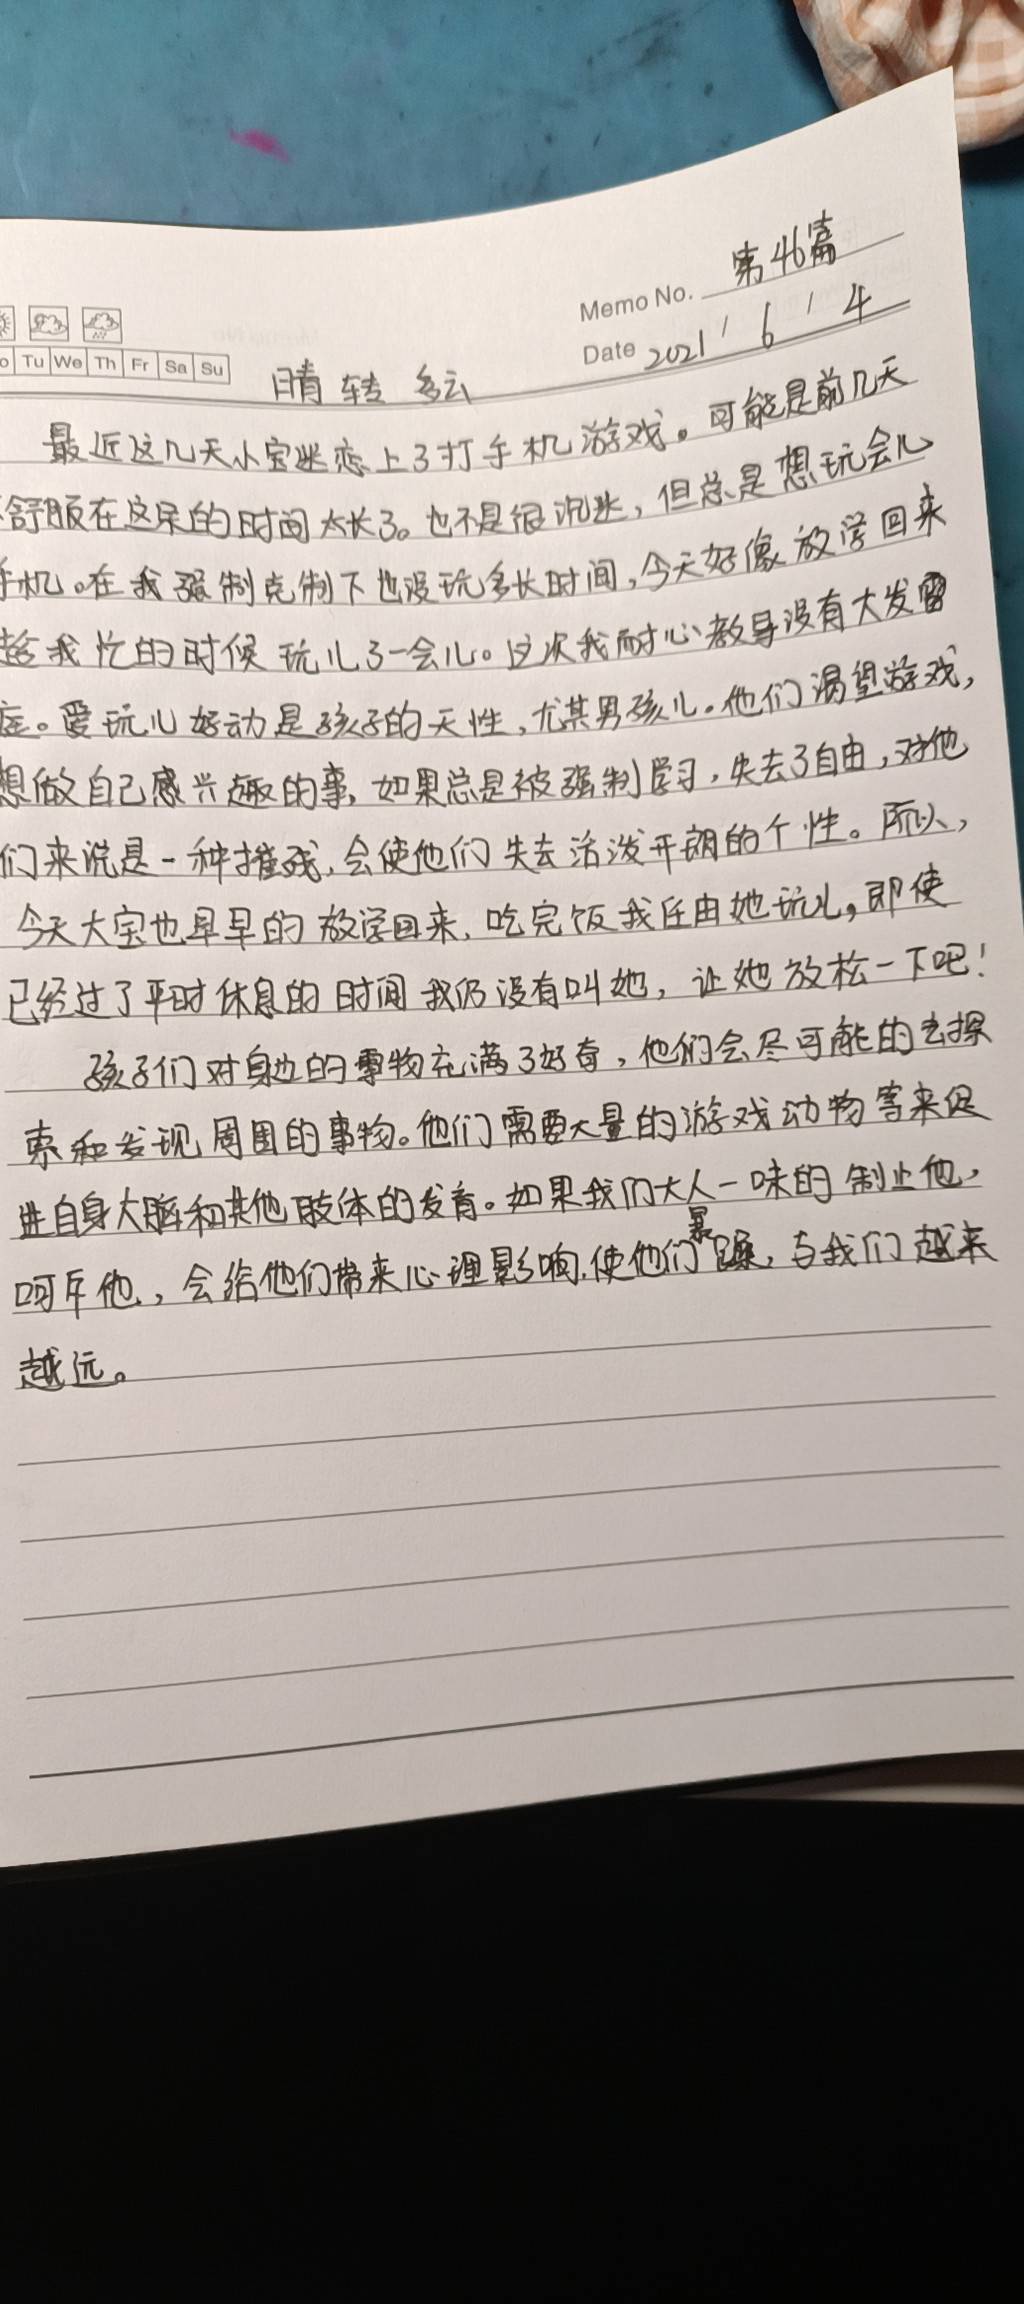 Memo No. 第46篇
Date 2021 / 6 / 4
o Tu We Th Fr Sa Su
晴转多云
最近这几天小宝迷恋上了打手机游戏。可能是前几天
舒服在这呆的时间太长了。也不是很沉迷，但总是想玩会儿
手机。在我强制克制下也没玩多长时间，今天好像放学回来
趁我忙的时候玩儿了一会儿。这次我耐心教导没有大发雷
庭。爱玩儿好动是孩子的天性，尤其男孩儿。他们渴望游戏，
想做自己感兴趣的事，如果总是被强制学习，失去了自由，对他
们来说是一种摧残，会使他们失去活泼开朗的个性。所以，
今天大宝也早早的放学回来，吃完饭我任由她玩儿，即使
已经过了平时休息的时间我仍没有叫她，让她放松一下吧！
孩子们对身边的事物充满了好奇，他们会尽可能的去探
索和发现周围的事物。他们需要大量的游戏动物等来促
进自身大脑和其他肢体的发育。如果我们大人一味的制止他，
呵斥他，会给他们带来心理影响，使他们暴躁，与我们越来
越远。